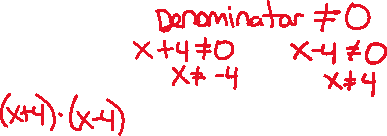 Denominator ≠ 0
x + 4 ≠ 0 x - 4 ≠ 0
x ≠ -4 x ≠ 4
(x+4) · (x-4)